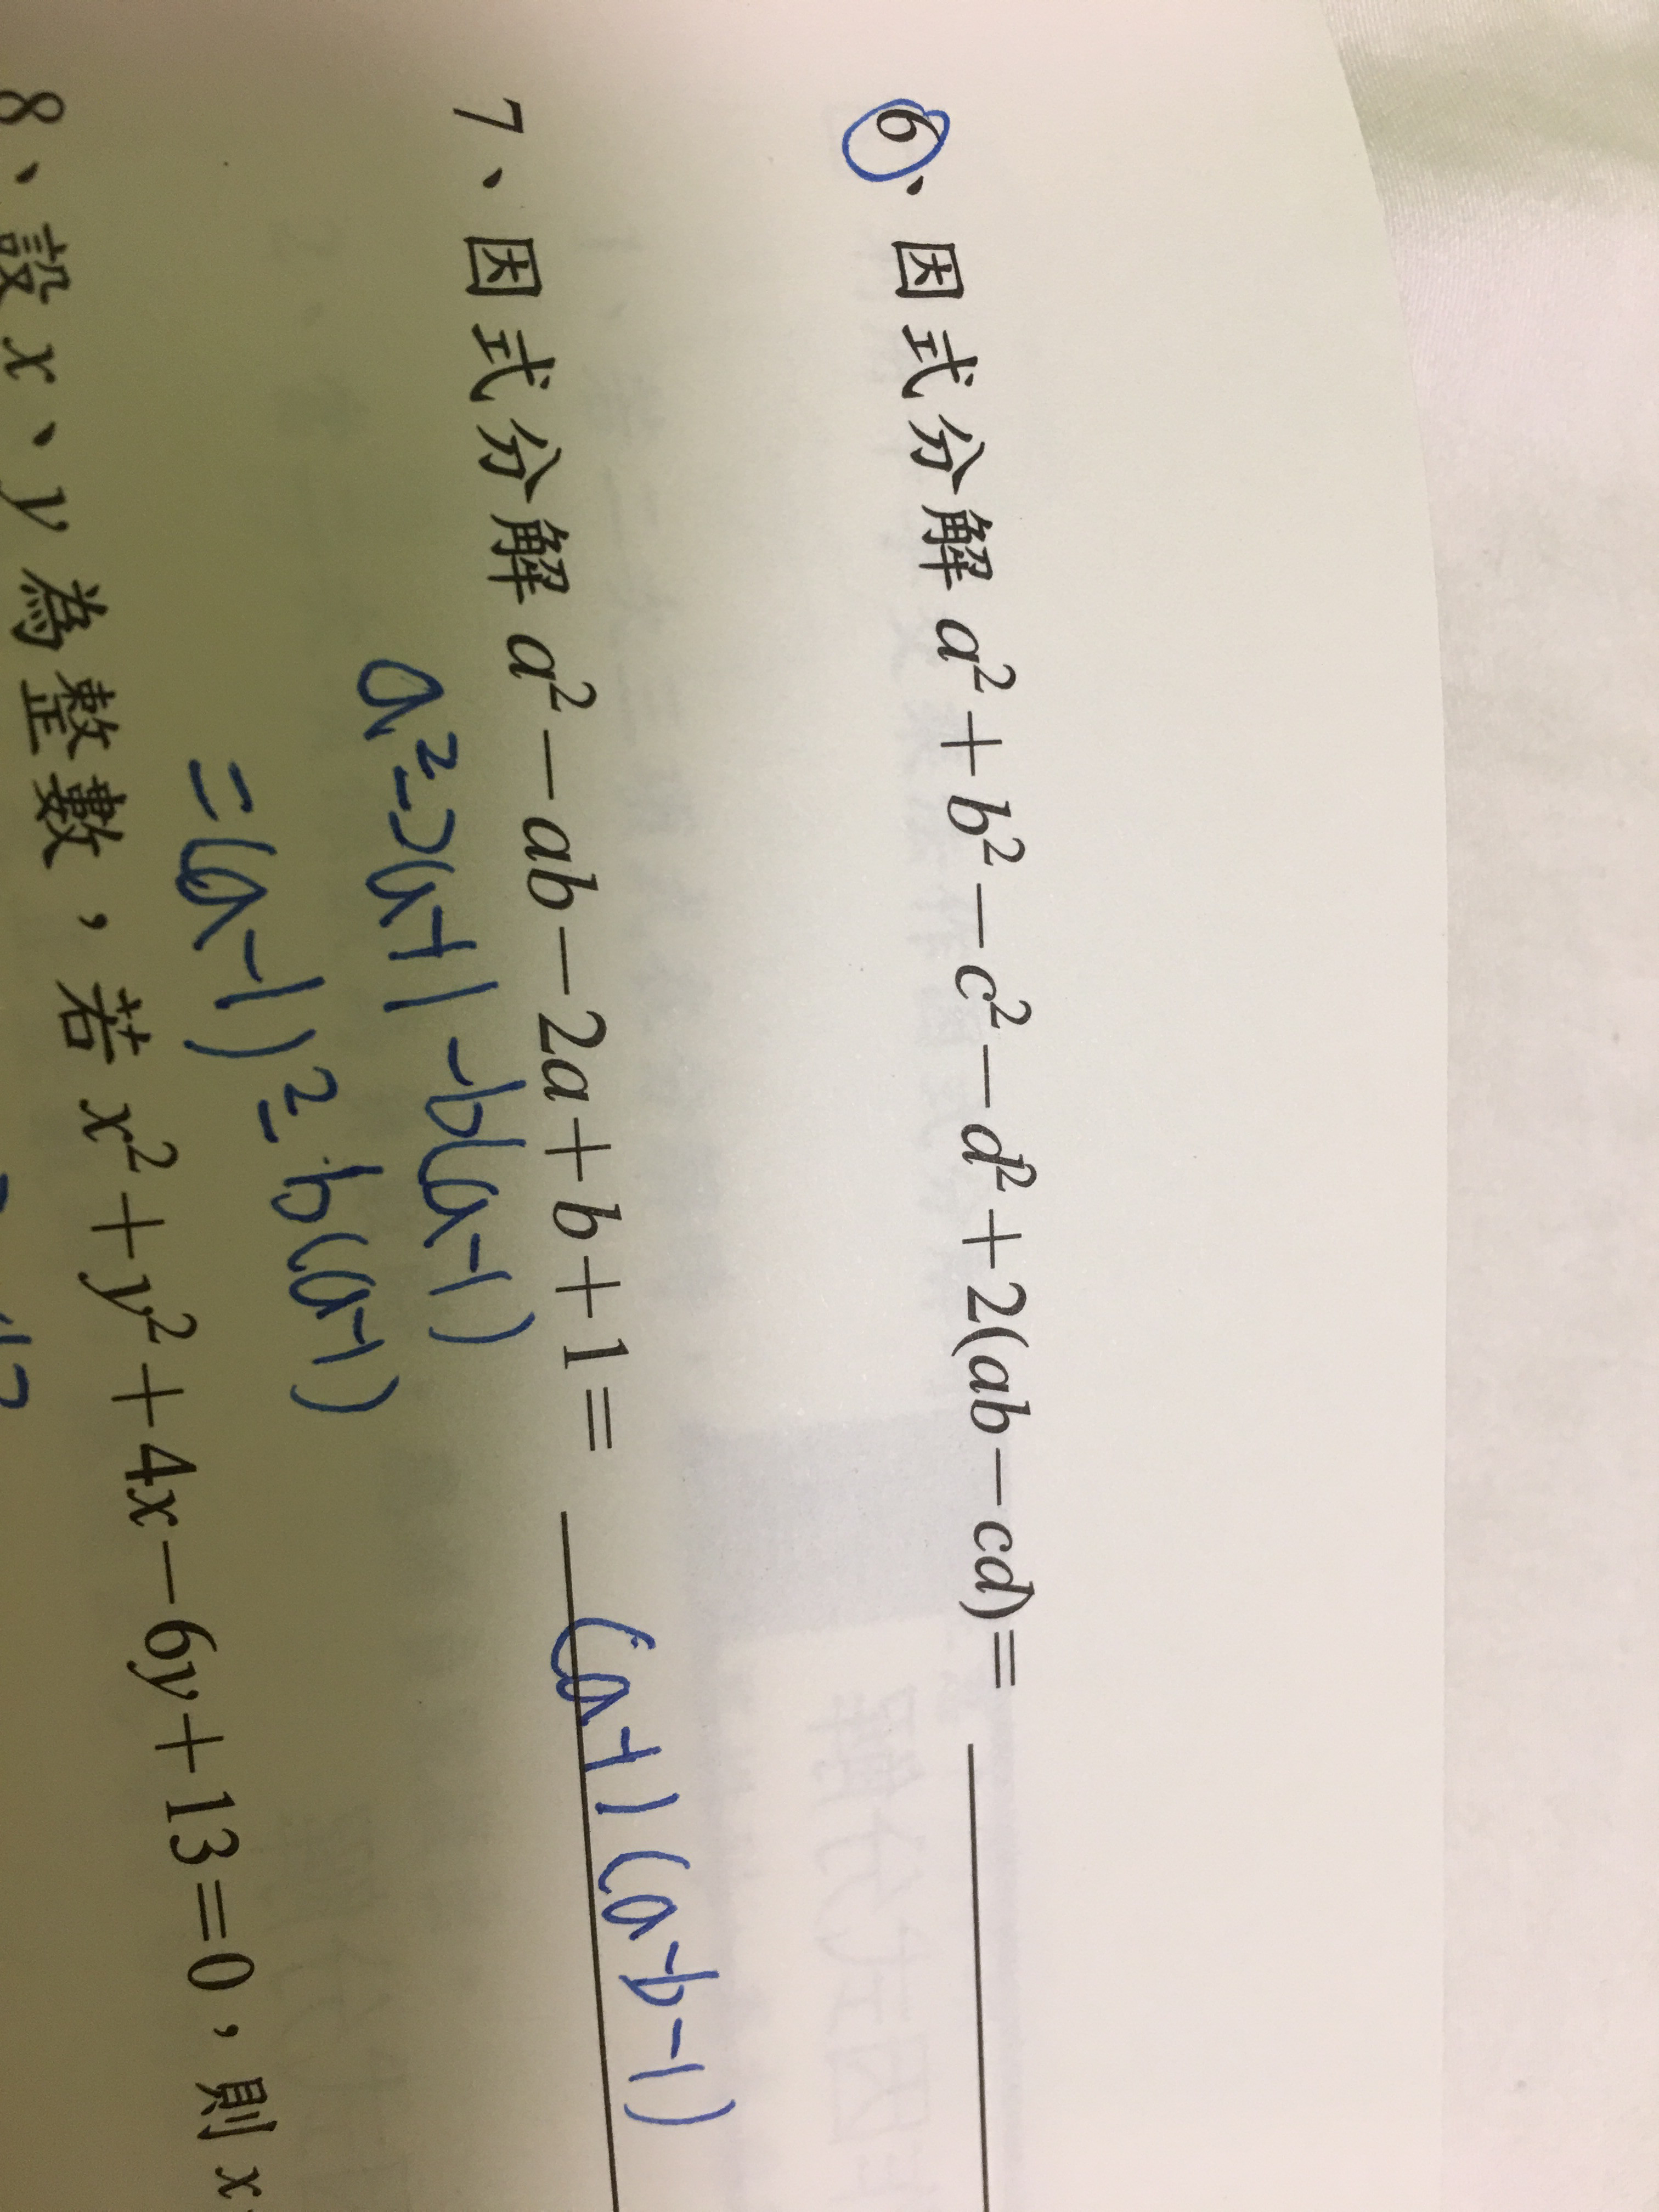 6、因式分解 a²+b²−c²−d²+2(ab−cd)=
7、因式分解 a²−ab−2a+b+1= (a+1(a-b-1)
a²-2a+1-b(a-1)
=(a-1)²-b(a-1)
8、設 x、y 為整數，若 x²+y²+4x−6y+13=0，則 x